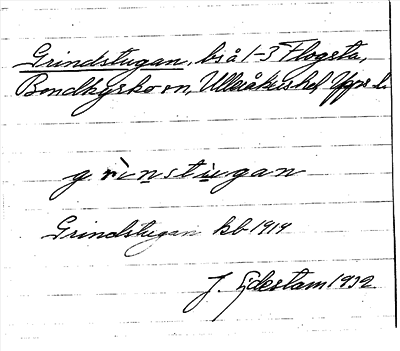 Grindstugan, bs å 1-3 Flogsta,
Bondkyrko sn, Ulleråkers hd Upps. l.
grinstugan
Grindstugan kb 1919
J. Eijdestam 1932